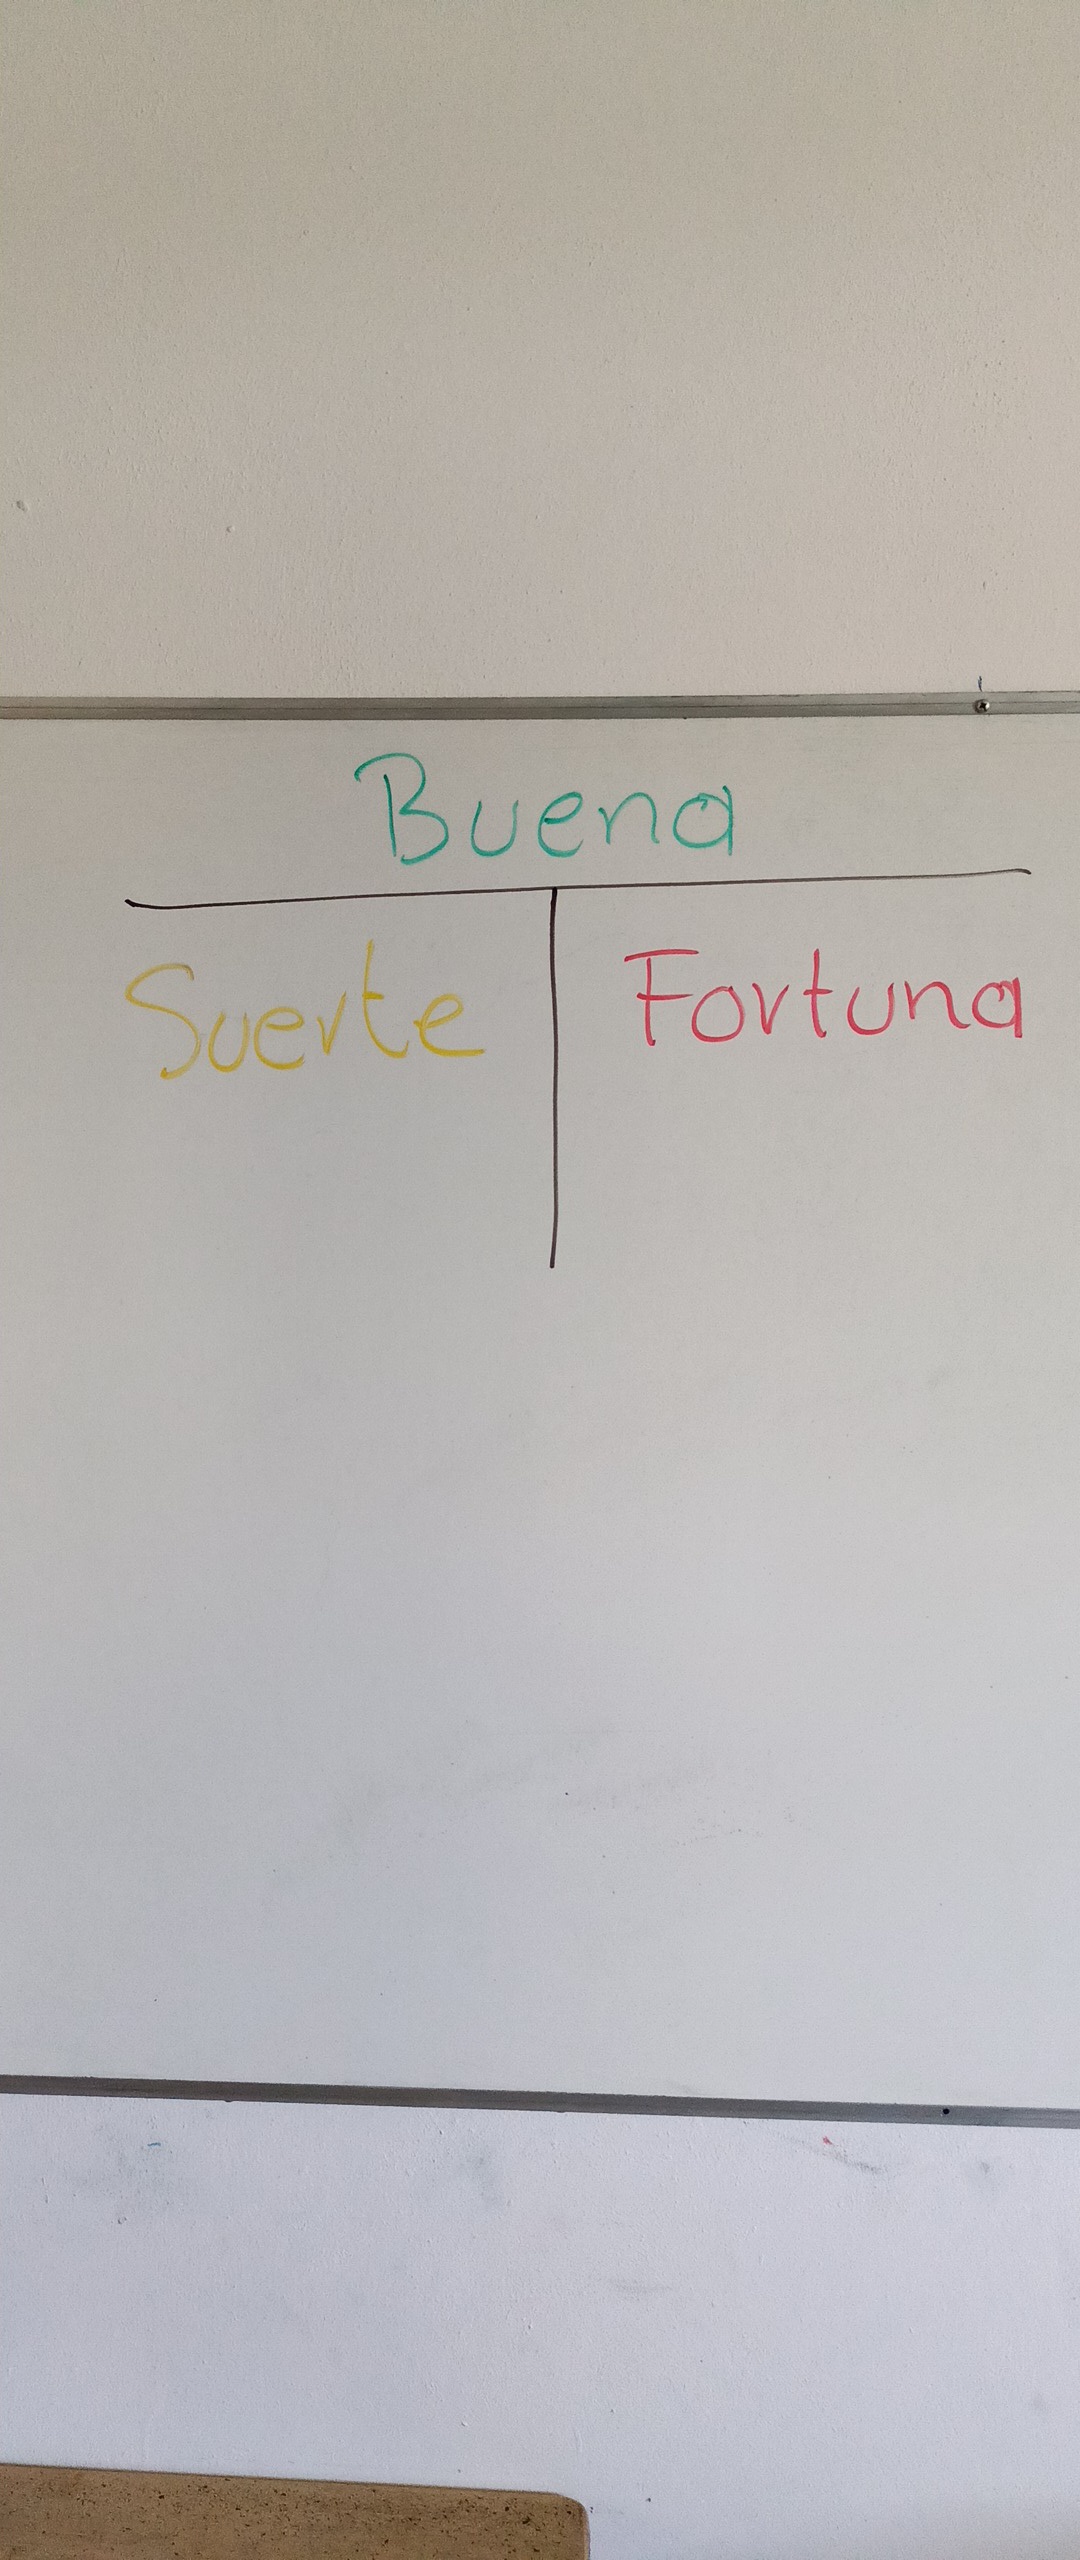 Buena
Suerte Fortuna